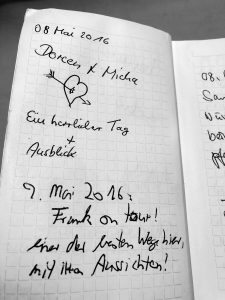 08 Mai 2016
Doreen & Micha
Ein herrlicher Tag
+
Ausblick
9. Mai 2016:
Frank on tour!
einer der besten Wege hier,
mit ihren Aussichten!
08.